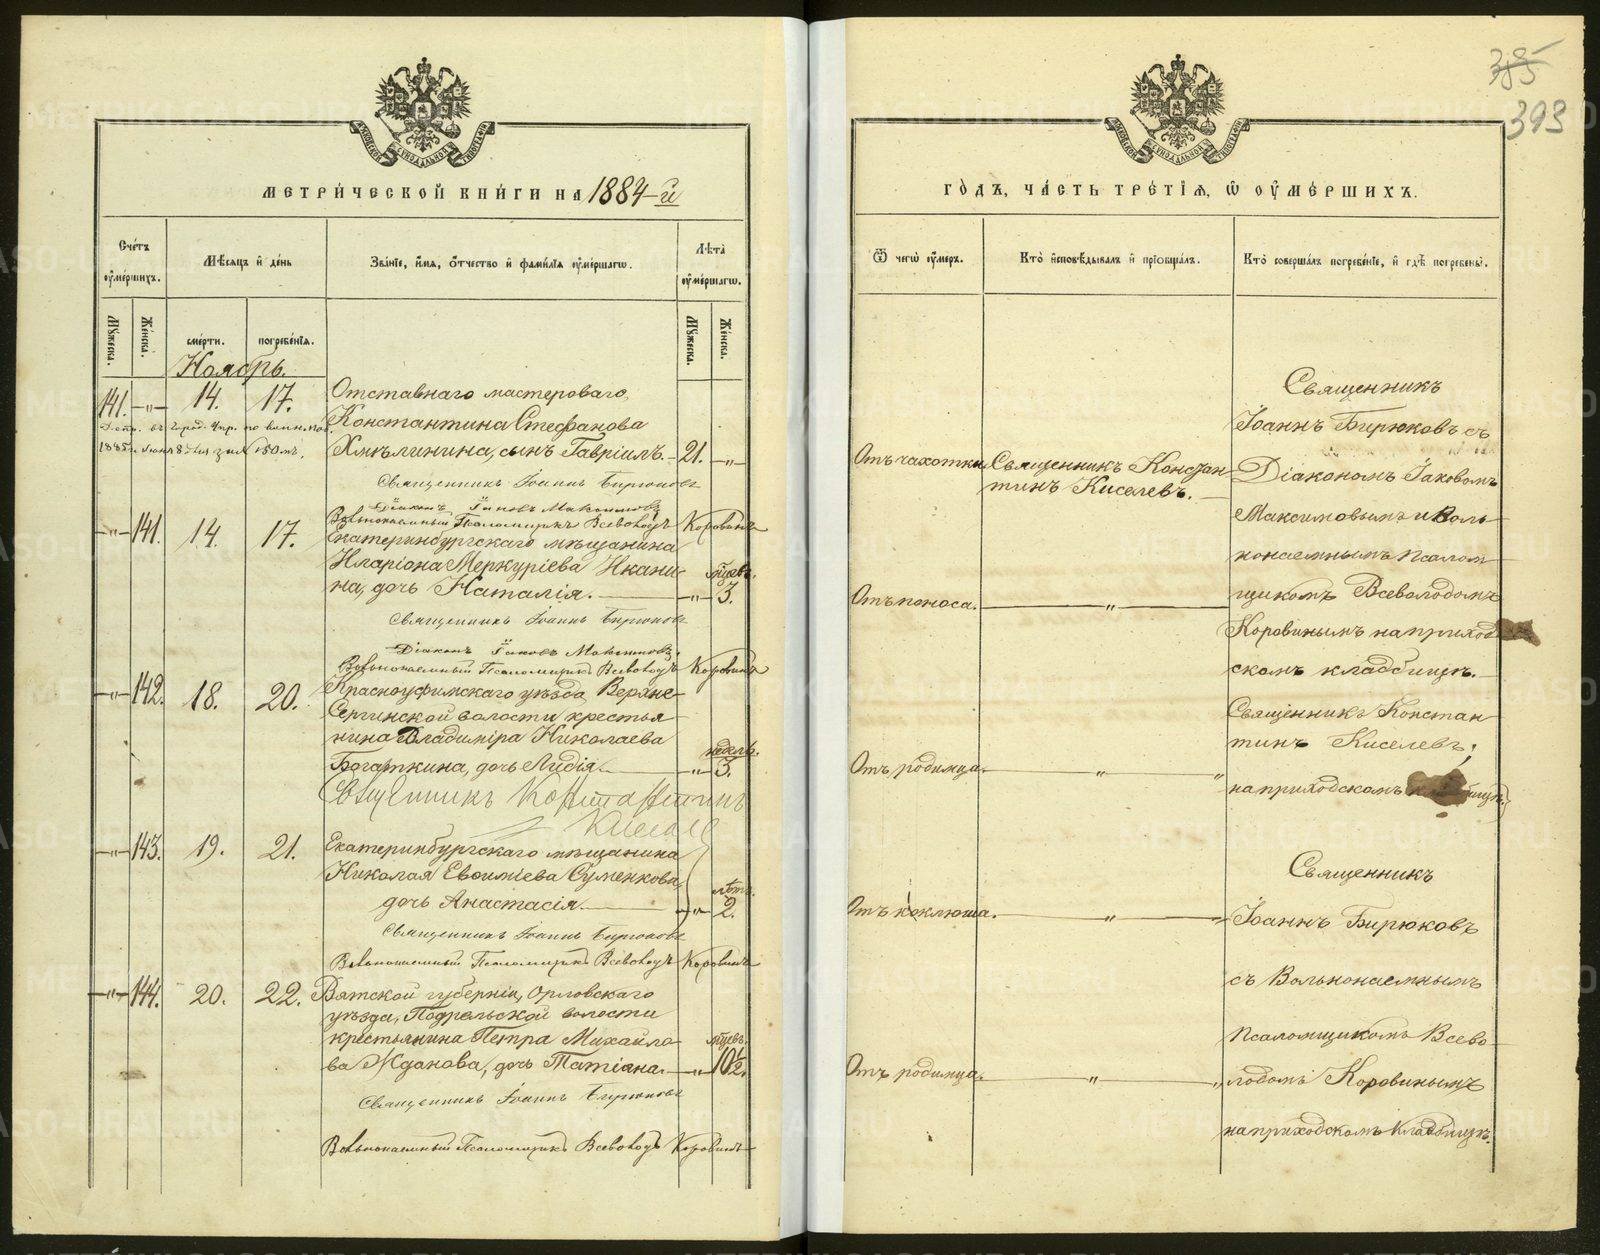 МЕТРИ́ЧЕСКОЙ КНИ́ГИ НА 1884-й
Счетъ оумершихъ.
Мѣсяцъ и день
Званіе, имя, отчество и фамилія оумершагѡ.
Лѣта оумершагѡ.
Мужеска.
Женска.
смерти.
погребенія.
Мужеска.
Женска.
Ноябрь.
141. —"— 14. 17. Отставнаго мастероваго
Константина Стефанова
Хмѣлинина, сынъ Гавріилъ. 21. —"—
Священникъ Іоаннъ Бирюковъ
Діаконъ Іаковъ Максимовъ
Вольнонаемный Псаломщикъ Всеволодъ Коровинъ
—"— 141. 14. 17. Екатеринбургскаго мѣщанина
Иларіона Меркуріева Икани-
на, дочь Наталія. —"— мѣсяц. 3.
Священникъ Іоаннъ Бирюковъ
Діаконъ Іаковъ Максимовъ
Вольнонаемный Псаломщикъ Всеволодъ Коровинъ
—"— 142. 18. 20. Красноуфимскаго уѣзда Верхне-
Сергинской волости крестья-
нина Владиміра Николаева
Богаткина, дочь Лидія. —"— недѣль. 3.
Священникъ Константинъ
Киселевъ
—"— 143. 19. 21. Екатеринбургскаго мѣщанина
Николая Евѳиміева Суменкова,
дочь Анастасія. —"— лѣтъ. 2.
Священникъ Іоаннъ Бирюковъ
Вольнонаемный Псаломщикъ Всеволодъ Коровинъ
—"— 144. 20. 22. Вятской губерніи, Орловскаго
уѣзда, Подрельской волости
крестьянина Петра Михайло-
ва Жданова, дочь Татіана. —"— 10½.
Священникъ Іоаннъ Бирюковъ
Вольнонаемный Псаломщикъ Всеволодъ Коровинъ
385
393
ГО́ДЪ, ЧА́СТЬ ТРЕ́ТІЯ, Ѡ ОУМЕ́РШИХЪ.
Ѿ чегѡ оумеръ.
Кто исповѣдывалъ и пріобщалъ.
Кто совершалъ погребеніе, и гдѣ погребены.
Отъ чахотки
Священникъ Констан-
тинъ Киселевъ.
Священникъ
Іоаннъ Бирюковъ съ
Діакономъ Іаковомъ
Максимовымъ и Воль-
нонаемнымъ псалом-
щикомъ Всеволодомъ
Коровинымъ на приход-
скомъ кладбищѣ.
Отъ поноса. "
Священникъ Констан-
тинъ Киселевъ;
на приходскомъ
Отъ родимца. " "
Священникъ
Іоаннъ Бирюковъ
съ Вольнонаемнымъ
Псаломщикомъ Всево-
лодомъ Коровинымъ
на приходскомъ кладбищѣ.
Отъ коклюша. " "
Отъ родимца. " "
METRIKI.GASO-URAL.RU